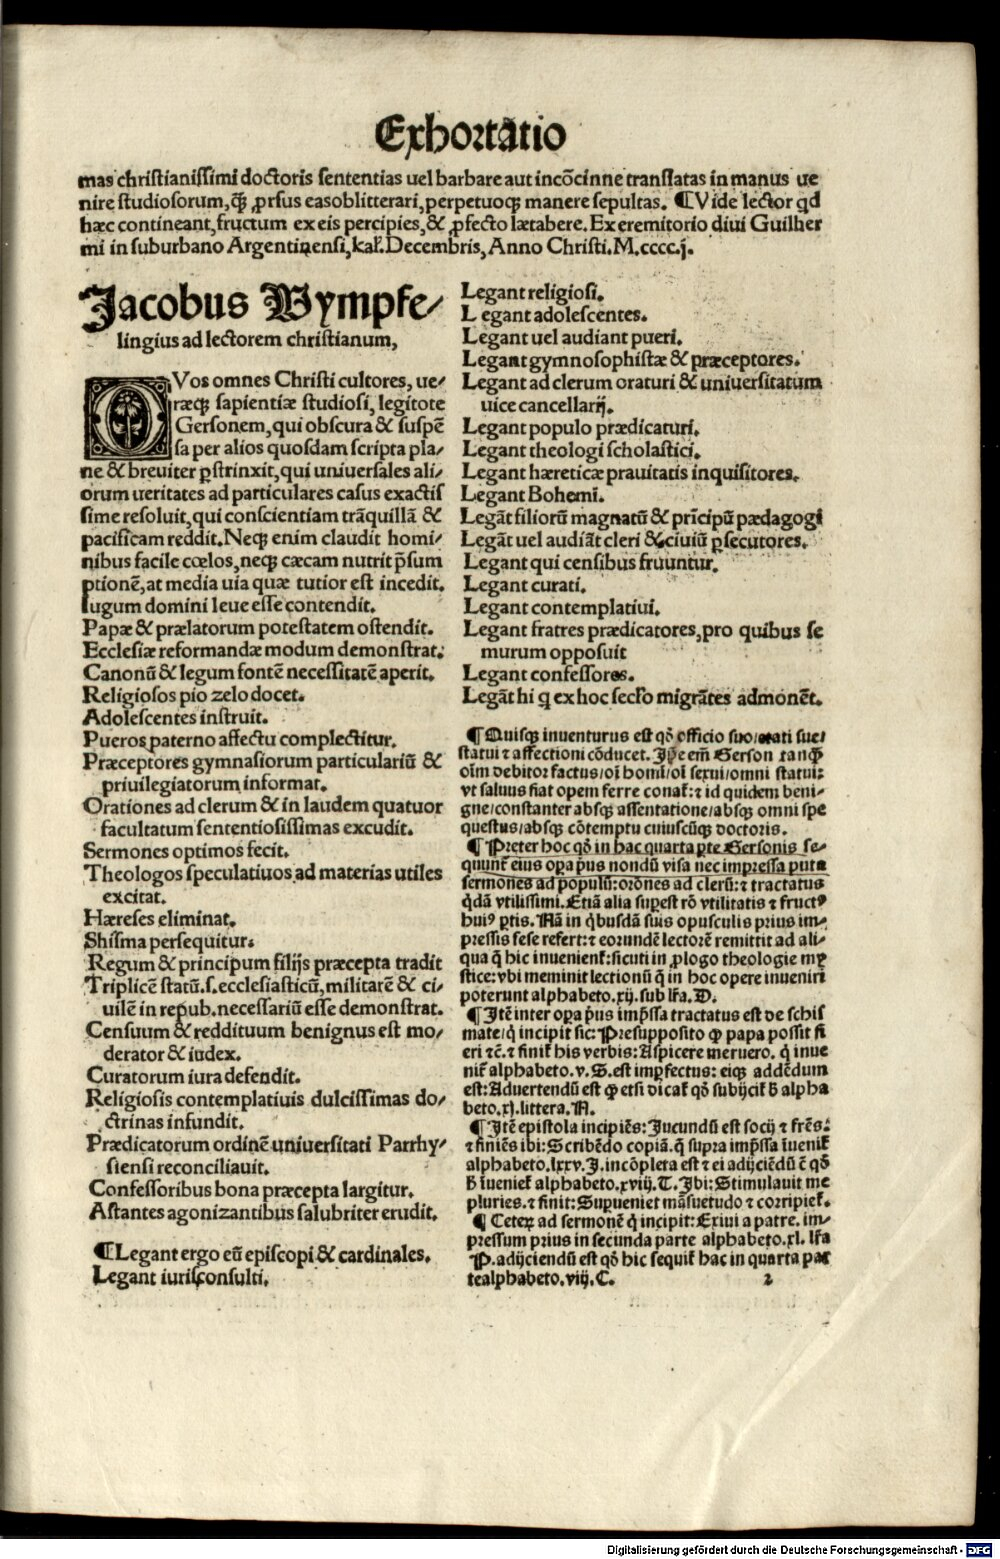 Exhortatio
mas christianissimi doctoris sententias uel barbare aut incōcinne translatas in manus ue
nire studiosorum, q̈ꝫ ꝓrsus eas oblitterari, perpetuoqꝫ manere sepultas. ¶Vide lector qd
hæc contineant, fructum ex eis percipies, & ꝓfecto lætabere. Ex eremitorio diui Guilher
mi in suburbano Argentinensi, kal. Decembris, Anno Christi. M.cccc.j.
Jacobus Wympfe⸗
lingius ad lectorem christianum,
OVos omnes Christi cultores, ue⸗
ræqꝫ sapientiæ studiosi, legitote
Gersonem, qui obscura & suspē
sa per alios quosdam scripta pla⸗
ne & breuiter ꝑstrinxit, qui uniuersales ali⸗
orum ueritates ad particulares casus exactis
sime resoluit, qui conscientiam trāquillā &
pacificam reddit. Neqꝫ enim claudit homi⸗
nibus facile cœlos, neqꝫ cæcam nutrit p̄sum
ptionē, at media uia quæ tutior est incedit.
Iugum domini leue esse contendit.
Papæ & prælatorum potestatem ostendit.
Ecclesiæ reformandæ modum demonstrat.
Canonū & legum fontē necessitatē aperit.
Religiosos pio zelo docet.
Adolescentes instruit.
Pueros paterno affectu complectitur.
Præceptores gymnasiorum particulariū &
priuilegiatorum informat.
Orationes ad clerum & in laudem quatuor
facultatum sententiosissimas excudit.
Sermones optimos fecit.
Theologos speculatiuos ad materias utiles
excitat.
Hæreses eliminat.
Shisma persequitur.
Regum & principum filijs præcepta tradit
Triplicē statū. s. ecclesiasticū, militarē & ci⸗
uilē in repub. necessariū esse demonstrat.
Censuum & reddituum benignus est mo⸗
derator & iudex.
Curatorum iura defendit.
Religiosis contemplatiuis dulcissimas do⸗
ctrinas infundit.
Prædicatorum ordinē uniuersitati Parrhy⸗
siensi reconciliauit.
Confessoribus bona præcepta largitur.
Astantes agonizantibus salubriter erudit.
¶Legant ergo eū episcopi & cardinales.
Legant iurisconsulti.
Legant religiosi.
L egant adolescentes.
Legant uel audiant pueri.
Legant gymnosophistæ & præceptores.
Legant ad clerum oraturi & uniuersitatum
uice cancellarij.
Legant populo prædicaturi.
Legant theologi scholastici.
Legant hæreticæ prauitatis inquisitores.
Legant Bohemi.
Legāt filiorū magnatū & prīcipū pædagogi
Legāt uel audiāt cleri & ciuiū ꝑsecutores.
Legant qui censibus fruuntur.
Legant curati.
Legant contemplatiui.
Legant fratres prædicatores, pro quibus se
murum opposuit
Legant confessores.
Legāt hi q ex hoc seclo migrātes admonēt.
¶Quisqꝫ inuenturus est qō officio suo/etati sue/
statui ⁊ affectioni cōducet. Ip̄e em̄ Gerson tanq̄ꝫ
oīm debitor factus/oī homī/oī sexui/omni statui:
vt saluus fiat opem ferre conat᷑: ⁊ id quidem beni⸗
gne/constanter absqꝫ assentatione/absqꝫ omni spe
questus/absqꝫ cōtemptu cuiuscūqꝫ doctoris.
¶Preter hoc qō in hac quarta ꝑte Gersonis se⸗
quunt᷑ eius oꝑa pⁱus nondū visa nec impressa puta
sermones ad populū: orōnes ad clerū: ⁊ tractatus
q̇dā vtilissimi. Etiā alia suꝑest rō vtilitatis ⁊ fructꝰ
huiꝰ ꝑtis. Nā in q̇busdā suis opusculis prius im⸗
pressis sese refert: ⁊ eorundē lectorē remittit ad ali⸗
qua q̄ hic inuenient᷑: sicuti in ꝓlogo theologie my
stice: vbi meminit lectionū q̄ in hoc opere inueniri
poterunt alphabeto. xij. sub lr̄a. D.
¶Itē inter oꝑa pⁱus imp̄ssa tractatus est de schis
mate/q̇ incipit sic: Presupposito ꝙ papa possit fi
eri ⁊c̄. ⁊ finit᷑ his verbis: Aspicere meruero. q̇ inue
nit᷑ alphabeto. v. S. est imꝑfectus: eiqꝫ addēdum
est: Aduertendū est ꝙ etsi dicat᷑ qō subijcit᷑ ħ alpha
beto. xl. littera. N.
¶Itē epistola incipiēs: Jucundū est socij ⁊ fr̄es:
⁊ finiēs ibi: Scribēdo copiā. q̄ supra imp̄ssa īuenit᷑
alphabeto. lxxv. J. incōpleta est ⁊ ei adijciēdū ē qō
ħ īueniet᷑ alphabeto. xviij. T. Ibi: Stimulauit me
pluries. ⁊ finit: Suꝑueniet māsuetudo ⁊ corripiet᷑.
¶ Ceteꝝ ad sermonē q̇ incipit: Exiui a patre. im⸗
pressum prius in secunda parte alphabeto. xl. lr̄a
P. adijciendū est qō hic sequit᷑ hac in quarta par
te alphabeto. viij. C.
2
Digitalisierung gefördert durch die Deutsche Forschungsgemeinschaft - DFG